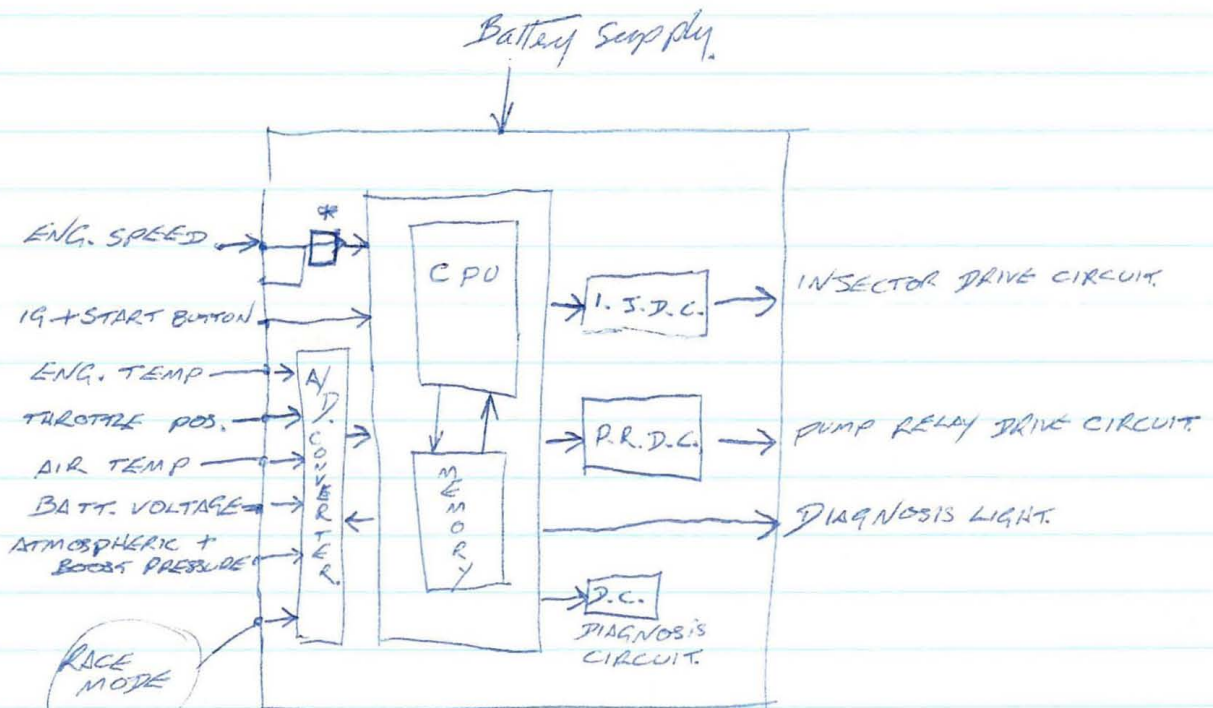 Battery Supply.
*
ENG. SPEED.
IG + START BUTTON
ENG. TEMP
THROTTLE POS.
AIR TEMP
BATT. VOLTAGE
ATMOSPHERIC +
BOOST PRESSURE
RACE
MODE
A/D. CONVERTER.
CPU
MEMORY
I.J.D.C.
INJECTOR DRIVE CIRCUIT.
P.R.D.C.
PUMP RELAY DRIVE CIRCUIT.
DIAGNOSIS LIGHT.
D.C.
DIAGNOSIS
CIRCUIT.